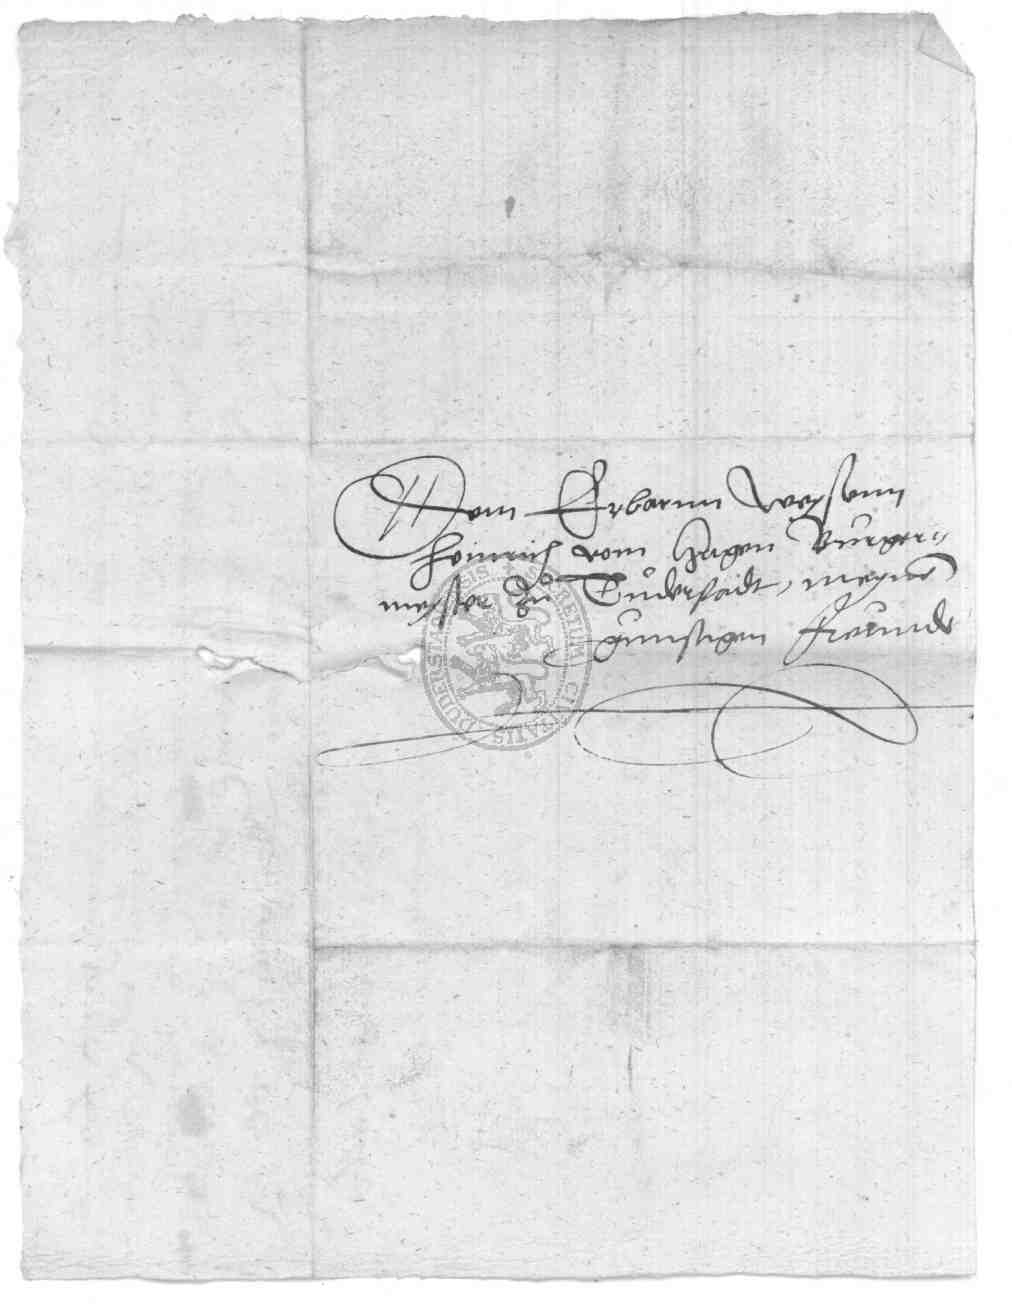 Dem Erbarnn Weysenn
Heinrich vom Hagen Burger,,
meyster zu Duderstadt, meyne
gunstigen Freunde
SECRETUM CIVITATIS DUDERSTADENSIS